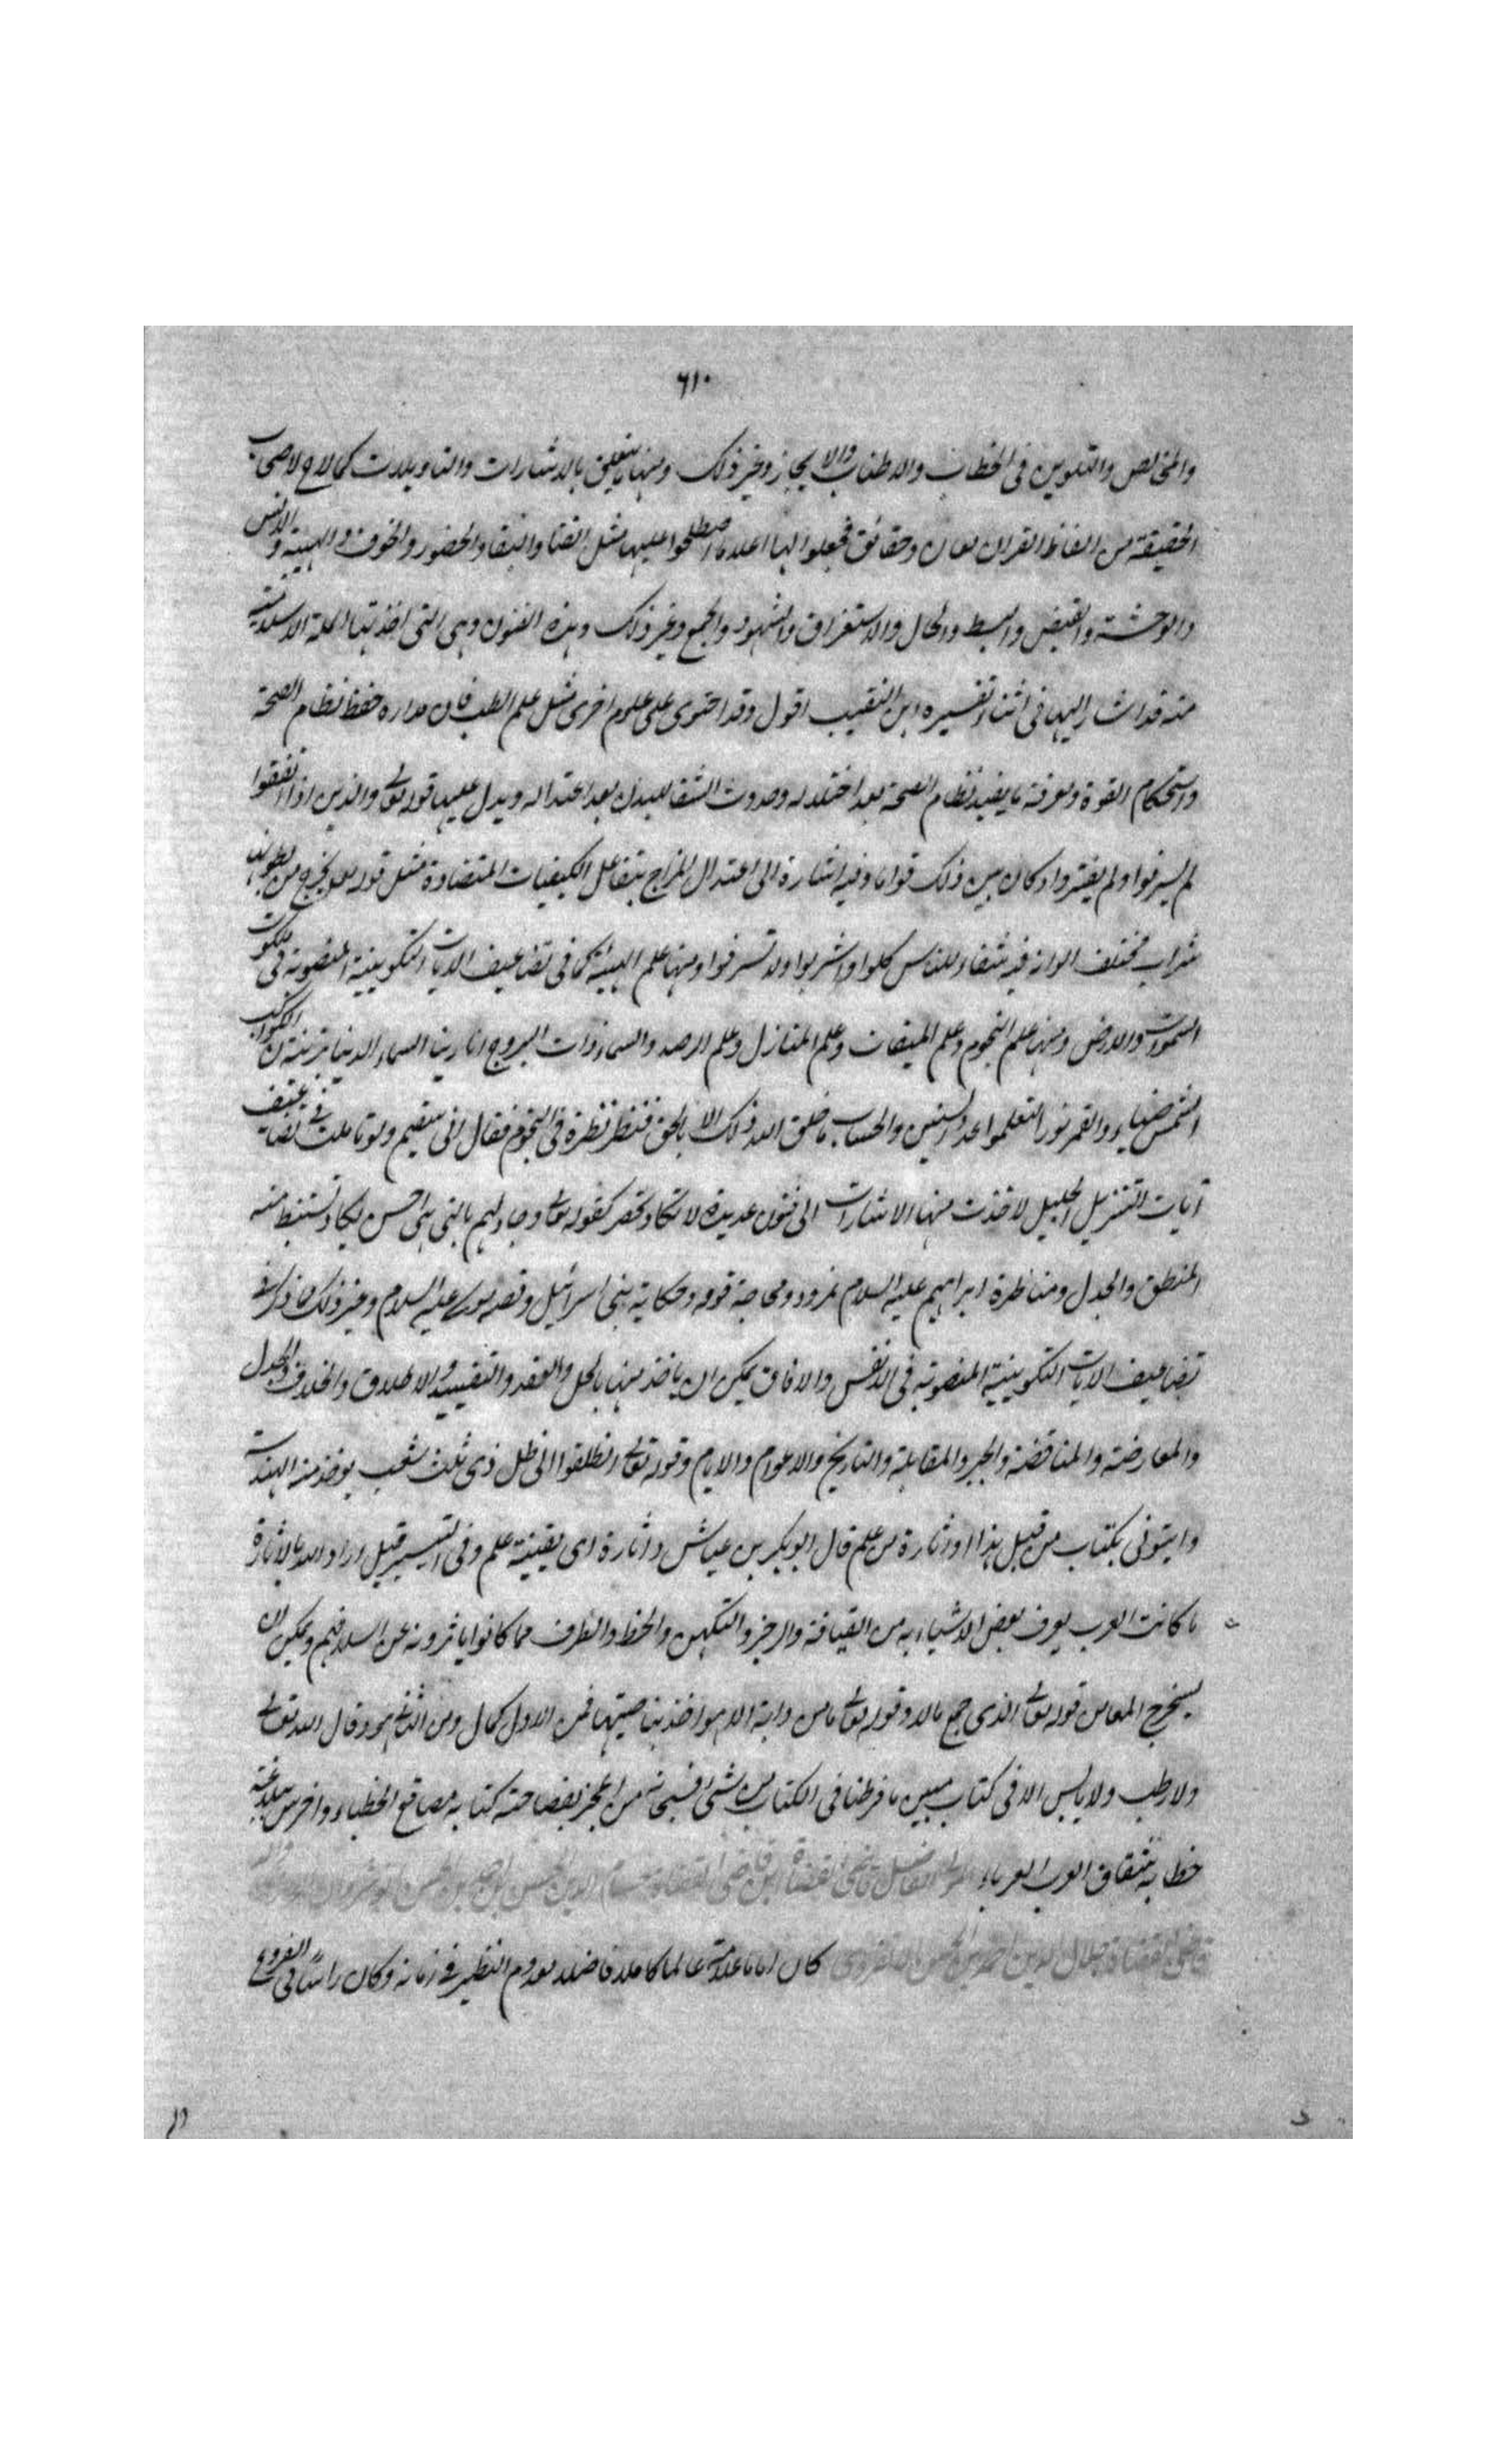 ٦١٠
والتخالص والتلوين في الخطاب والاطناب والايجاز وغير ذلك ومنها ما يتعلق بالاشارات والتاويلات كما لاح لاصحاب
الحقيقة من الفاظ القران معان وحقائق فجعلوا لها اعلاما اصطلحوا عليها مثل الفنا والبقا والحضور والخوف والهيبة والانس
والوحشة والقبض والبسط والحال والاستغراق والشهود والجمع وغير ذلك وهذه الفنون وهي التي اخذتها الملة الاسلامية
منه قد اشار اليها في اثناء تفسيره ابن النقيب اقول وقد احتوى على علوم اخرى مثل علم الطب فان مداره حفظ نظام الصحة
واستحكام القوة ومعرفة ما يفيد نظام الصحة بعد اختلاله وحدوث الشفا للبدن بعد اعتداله ويدل عليها قوله تعالى والذين اذا انفقوا
لم يسرفوا ولم يقتروا وكان بين ذلك قواما وفيه اشارة الى اعتدال المزاج بتفاعل الكيفيات المتضادة مثل قوله يخرج من بطونها
شراب مختلف الوانه فيه شفاء للناس كلوا واشربوا ولا تسرفوا ومنها علم الهيئة كما في تضاعيف الايات التكوينية المنصوبة في ملكوت
السموات والارض ومنها علم النجوم وعلم الميقات وعلم المنازل وعلم الرصد والسماء ذات البروج انا زينا السماء الدنيا بزينة ن الكواكب
الشمس ضياء والقمر نورا لتعلموا عدد السنين والحساب ما خلق الله ذلك الا بالحق فنظر نظرة في النجوم فقال اني سقيم ولو تاملت في تضاعيف
آيات التنزيل الجليل لاخذت منها الاشارات الى فنون عديدة لا تكاد تحصر كقوله تعالى وجادلهم بالتي هي احسن يكاد تستنبط منه
المنطق والجدل ومناظرة ابراهيم عليه السلام نمرود ومحاجة قومه وحكاية بني اسرائيل وقصة موسى عليه السلام وغير ذلك ما ذكر في
تضاعيف الايات التكوينية المنصوبة في الانفس والافاق يمكن ان ياخذ منها بالحل والعقد والتقييد والاطلاق والخلاف والجدل
والمعارضة والمناقضة والجبر والمقابلة والتاريخ والاعوام والايام وقوله تعالى انطلقوا الى ظل ذي ثلث شعب يوخذ منه الهندسة
وايتوني بكتاب من قبل هذا او اثارة من علم قال ابو بكر بن عياش واثارة اى بقيتة علم وفي التيسير قيل اراد الله بالاثارة
ما كانت العرب يعرف بعض الاشياء به من القيافة والزجر والتكهن والخط والطرف مما كانوا ياثرونه عن اسلافهم ويمكن ان
يستخرج المعا من قوله تعالى الذي جمع مالا وقوله تعالى ما من دابة الا هو اخذ بناصيتها فمن الاول كمال ومن الثاني هود وقال الله تعالى
ولا رطب ولا يابس الا في كتاب مبين ما فرطنا في الكتاب من شئ فسبحانه من اعجز بفصاحته كتابه مصاقع الخطباء واخرس ببلاغته
خطابه شقاق العرب العرباء المولى الفاضل قاضي القضاة ابن قاضي القضاة حسام الدين الحسن بن احمد بن الحسن بن انوشروان
قاضي القضاة جلال الدين احمد بن الحسن كان اماما علامة عالما كاملا فاضلا معدوم النظير في زمانه وكان راسا في الفروع